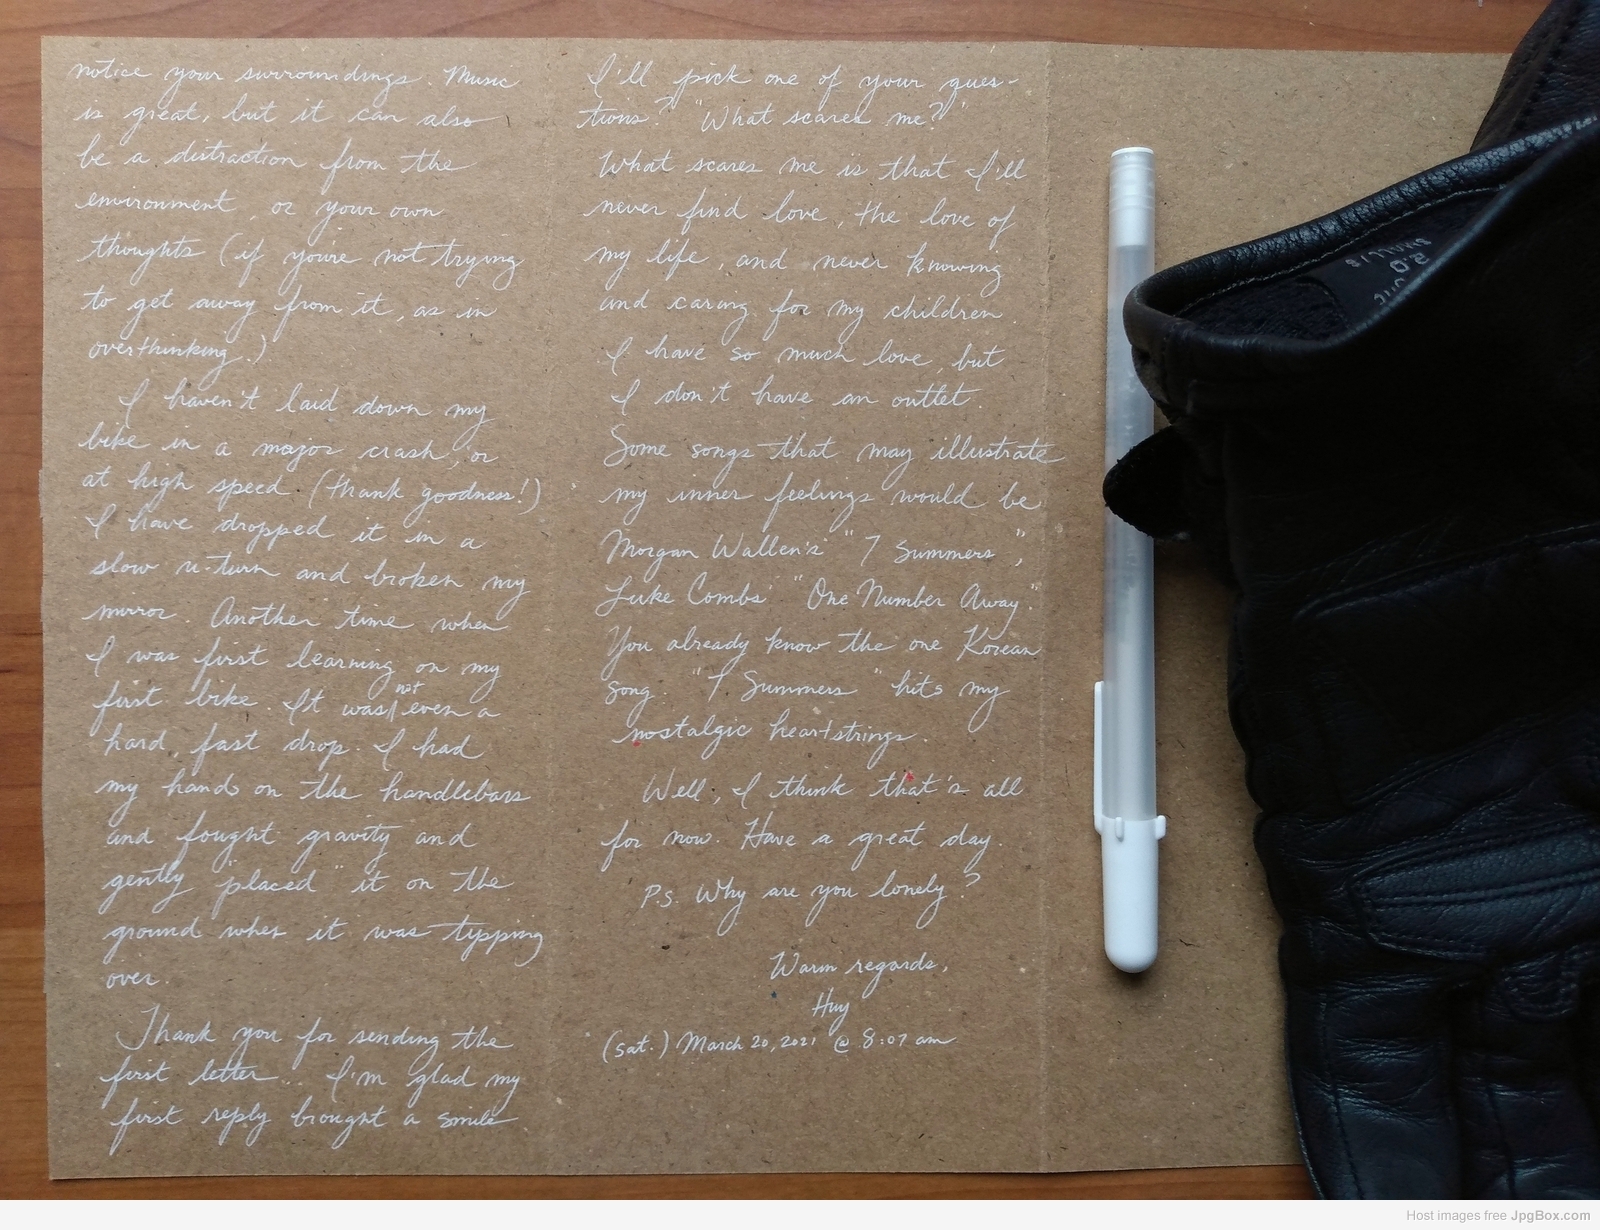 notice your surroundings. Music
is great, but it can also
be a distraction from the
environment, or your own
thoughts (if you're not trying
to get away from it, as in
overthinking.)
I haven't laid down my
bike in a major crash, or
at high speed (thank goodness!)
I have dropped it in a
slow u-turn and broken my
mirror. Another time when
I was first learning on my
first bike. It was not even a
hard, fast drop. I had
my hands on the handlebars
and fought gravity and
gently "placed" it on the
ground when it was tipping
over.
Thank you for sending the
first letter... I'm glad my
first reply brought a smile
I'll pick one of your ques-
tions? "What scares me?"
What scares me is that I'll
never find love, the love of
my life, and never knowing
and caring for my children
I have so much love, but
I don't have an outlet.
Some songs that may illustrate
my inner feelings would be
Morgan Wallen's "7 Summers",
Luke Combs' "One Number Away."
You already know the one Korean
song. "7 Summers" hits my
nostalgic heartstrings.
Well, I think that's all
for now. Have a great day.
P.S. Why are you lonely?
Warm regards,
Huy
(Sat.) March 20, 2021 @ 8:07 am
Host images free JpgBox.com